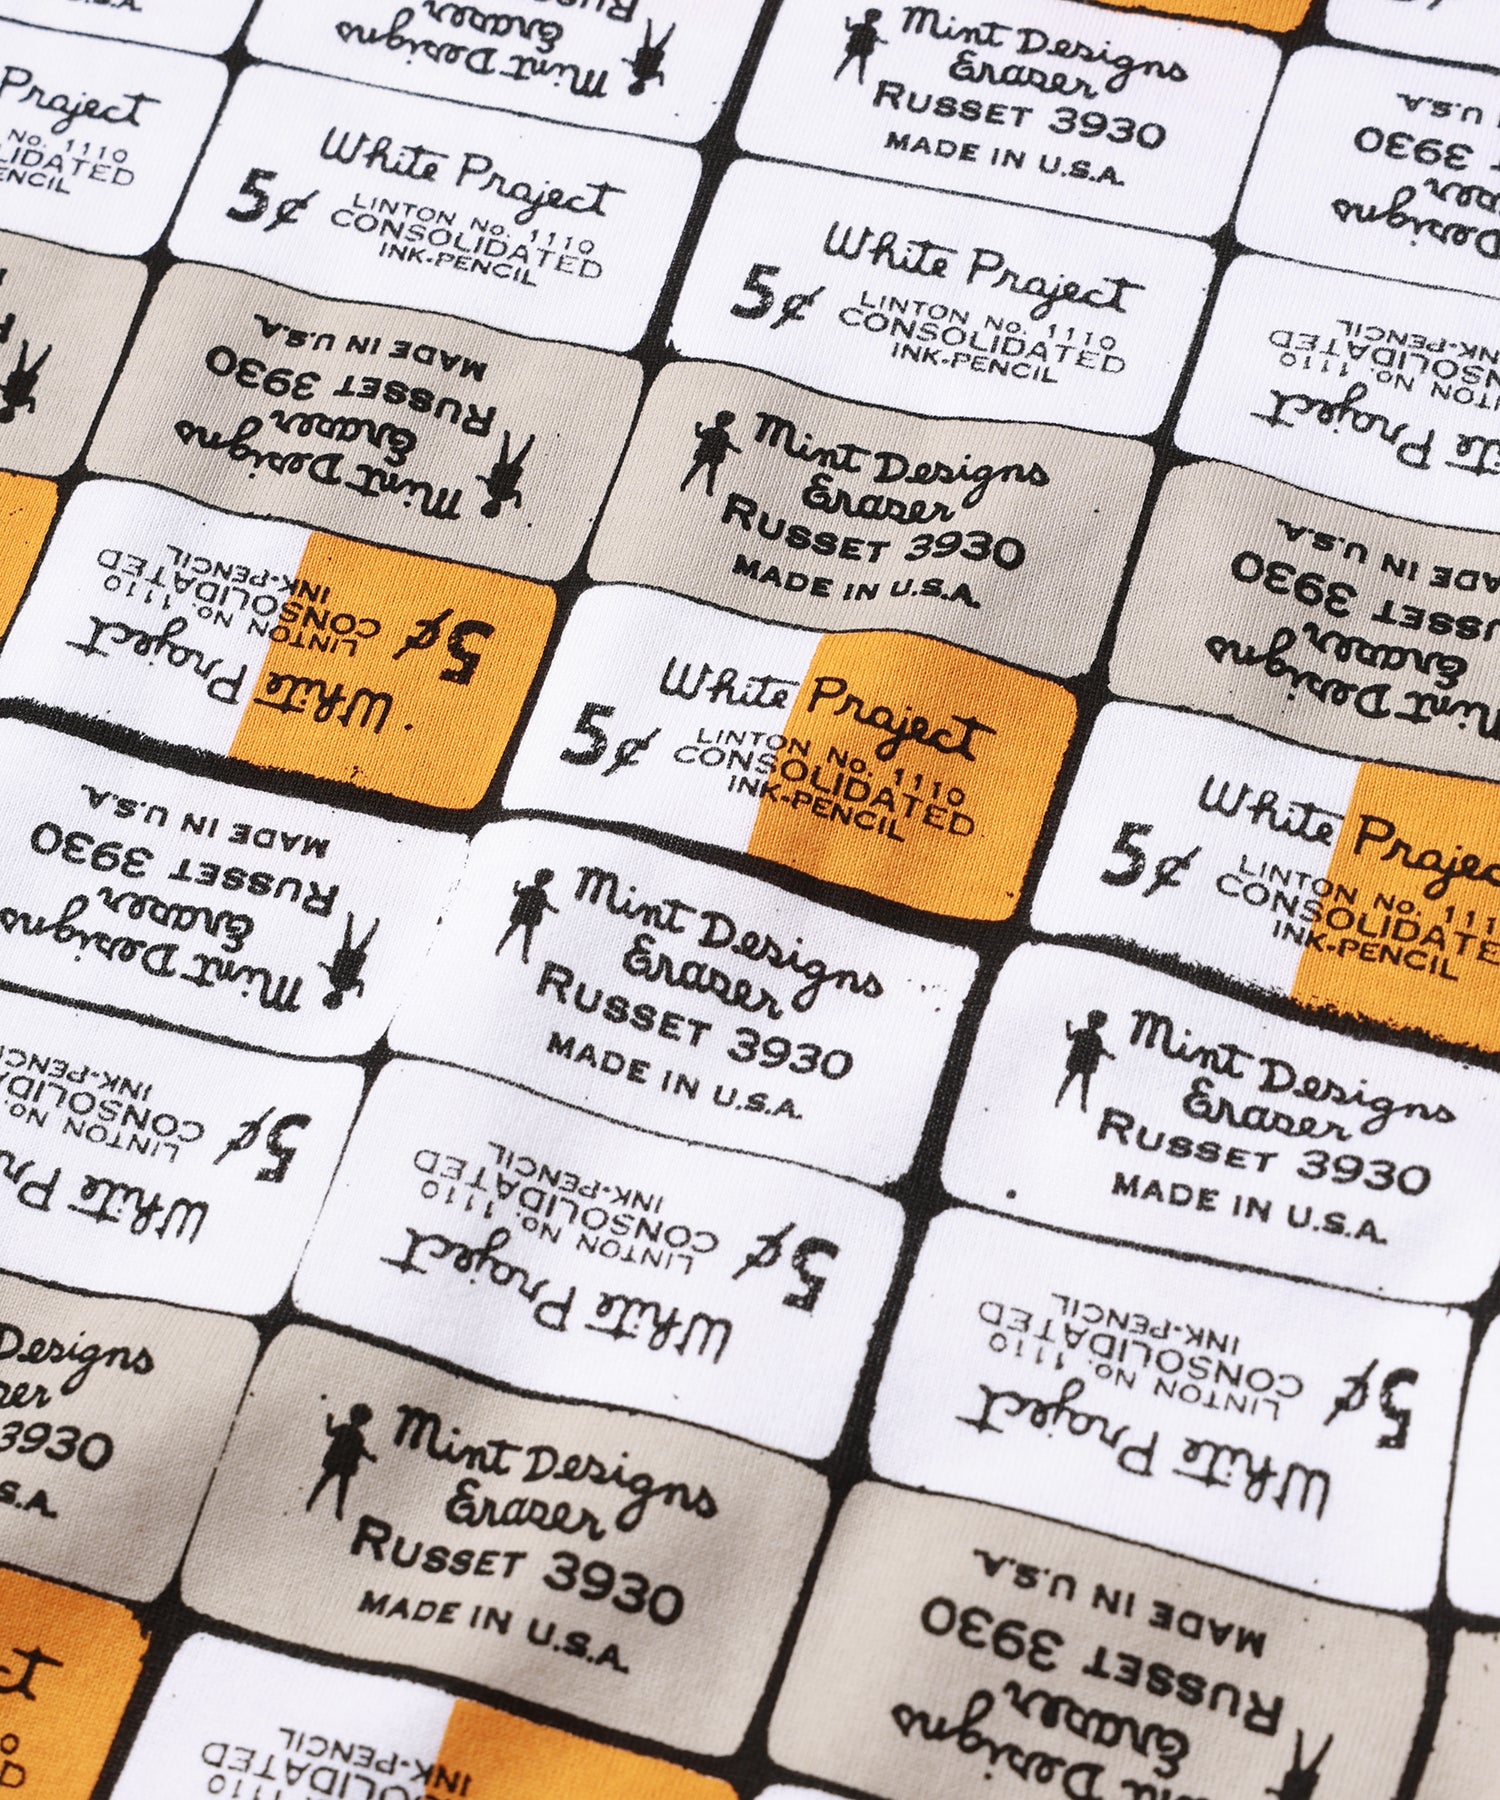 Mint Designs
Eraser
Mint Designs
Eraser
RUSSET 3930
MADE IN U.S.A.
U.S.A.
3930
Designs
Project
No. 1110
White Project
5¢
LINTON No. 1110
CONSOLIDATED
INK-PENCIL
White Project
5¢
LINTON No. 1110
CONSOLIDATED
INK-PENCIL
No. 1110
CONSOLIDATED
Project
Mint Designs
Eraser
RUSSET 3930
MADE IN U.S.A.
Mint Designs
Eraser
RUSSET 3930
MADE IN U.S.A.
Designs
Eraser
3930
IN U.S.A.
White Project
5¢
LINTON No. 1110
CONSOLIDATED
INK-PENCIL
White Project
5¢
LINTON No. 1110
CONSOLIDATED
INK-PENCIL
White
5¢
LINTON No.
INK-PENCIL
Mint Designs
Eraser
RUSSET 3930
MADE IN U.S.A.
Mint Designs
Eraser
RUSSET 3930
MADE IN U.S.A.
Mint Designs
Eraser
RUSSET 3930
MADE IN U.S.A.
White
5¢
LINTON No.
INK-PENCIL
White Project
5¢
LINTON No. 1110
CONSOLIDATED
INK-PENCIL
White Project
5¢
LINTON No. 1110
CONSOLIDATED
INK-PENCIL
Designs
3930
Mint Designs
Eraser
RUSSET 3930
MADE IN U.S.A.
Designs
Eraser
RUSSET 3930
MADE IN U.S.A.
CONSOLIDATED
INK-PENCIL